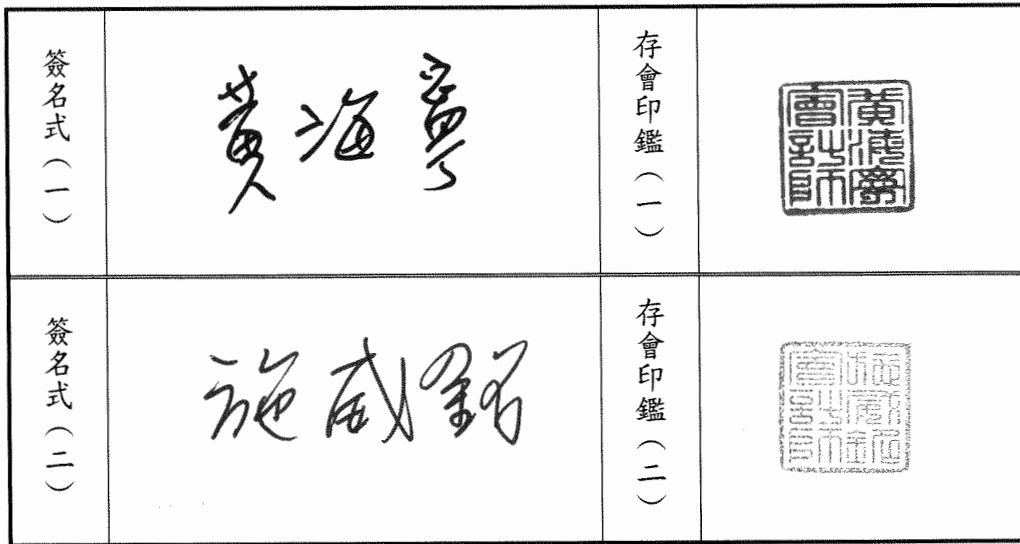 簽名式（一）
黃海寧
存會印鑑（一）
黃海寧
會計師
簽名式（二）
施威銘
存會印鑑（二）
施威銘
會計師